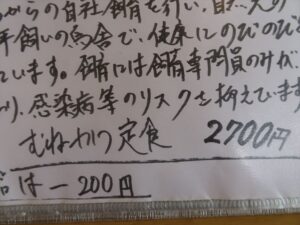 からの自社飼育を行い、自然入の
平飼いの鳥舎で、健康にのびのび
ています。飼育には飼育専門員のみが、
り、感染病等のリスクを抑えています
むねかつ定食 2700円
は －200円